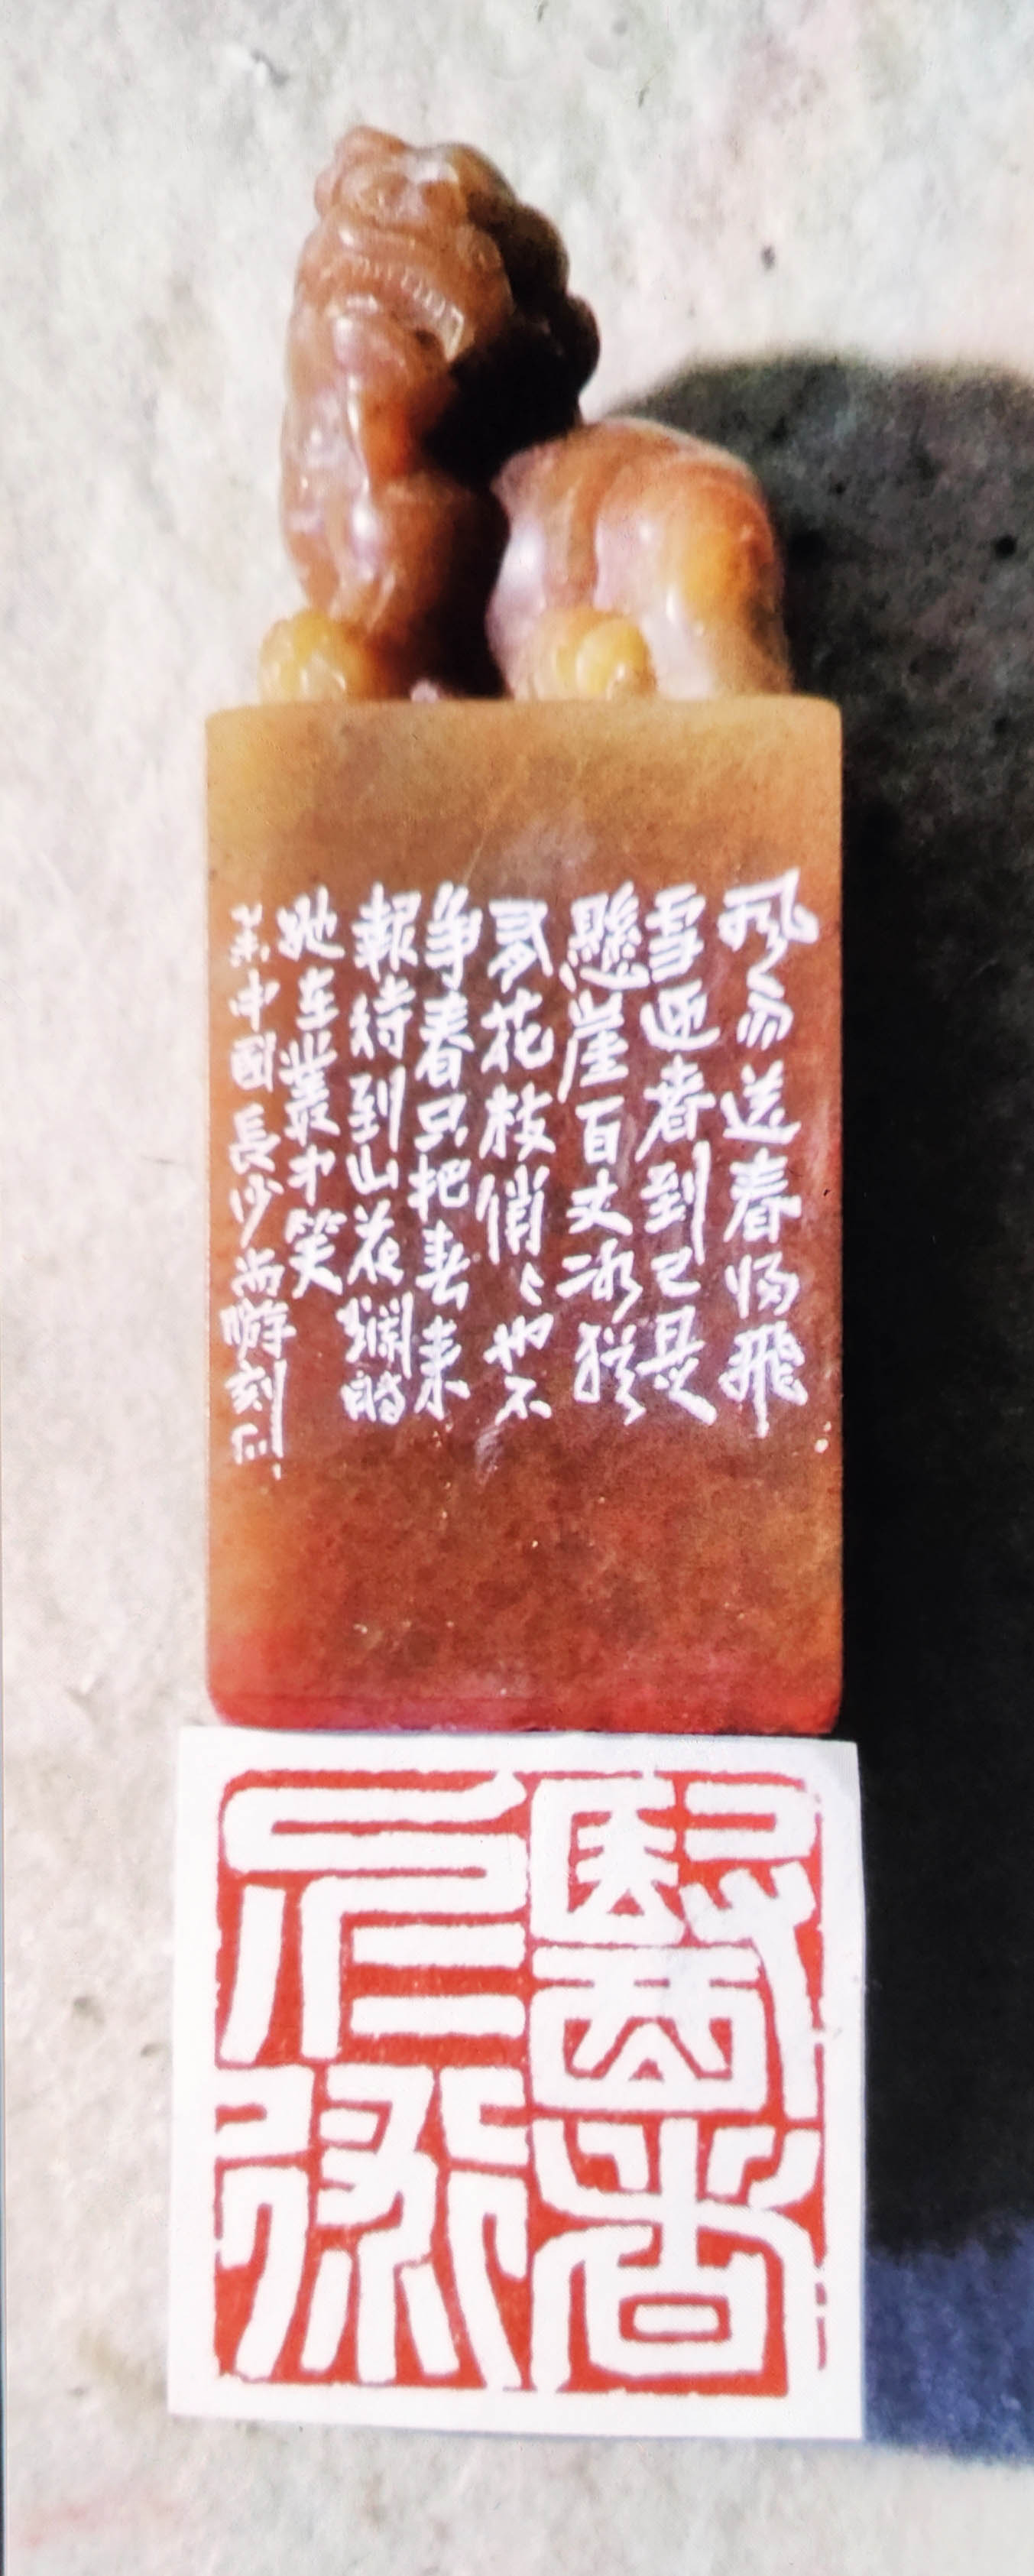 風雨送春归飛
雪迎春到已是
懸崖百丈冰猶
有花枝俏々也不
争春只把春来
報待到山花爛時
她在叢中笑
中國長沙尚游刻
醫者
仁術